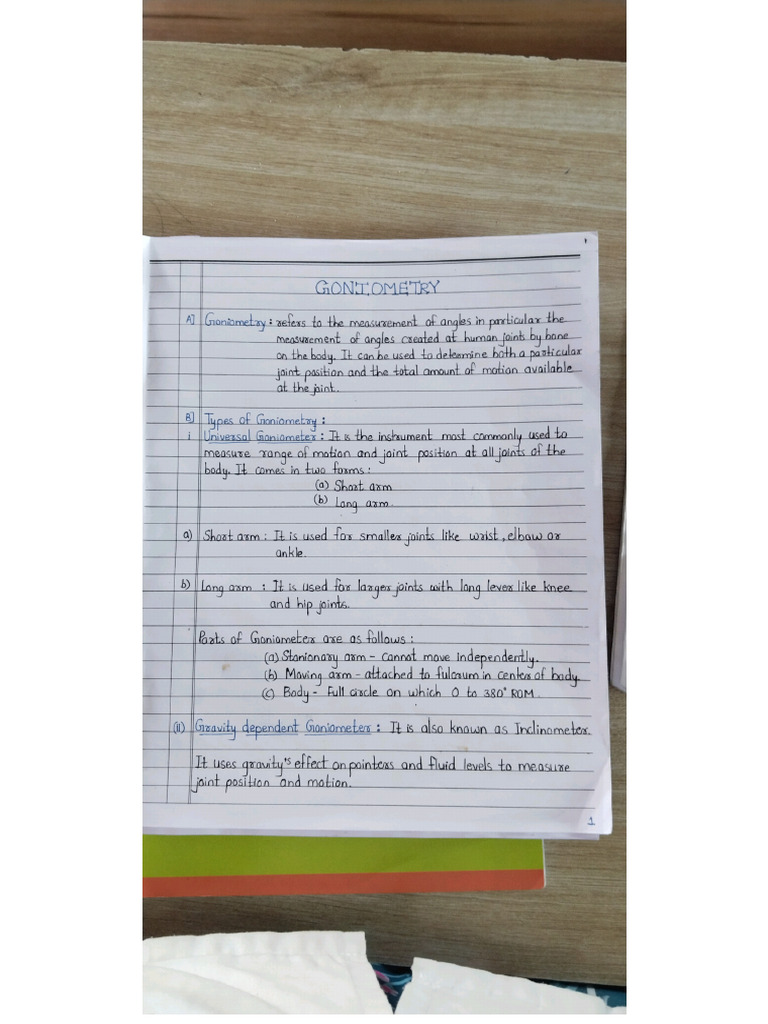 GONIOMETRY
A] Goniometry : refers to the measurement of angles in particular the
measurement of angles created at human joints by bone
on the body. It can be used to determine both a particular
joint position and the total amount of motion available
at the joint.
B] Types of Goniometry :
i Universal Goniometer : It is the instrument most commonly used to
measure range of motion and joint position at all joints of the
body. It comes in two forms :
(a) Short arm
(b) Long arm.
a) Short arm : It is used for smaller joints like wrist, elbow or
ankle.
b) Long arm : It is used for larger joints with long lever like knee
and hip joints.
Parts of Goniometer are as follows :
(a) Stanionary arm - cannot move independently.
(b) Moving arm - attached to fulcrum in center of body.
(c) Body - Full circle on which 0 to 380° ROM.
(ii) Gravity dependent Goniometer : It is also known as Inclinometer.
It uses gravity's effect on pointers and fluid levels to measure
joint position and motion.
1